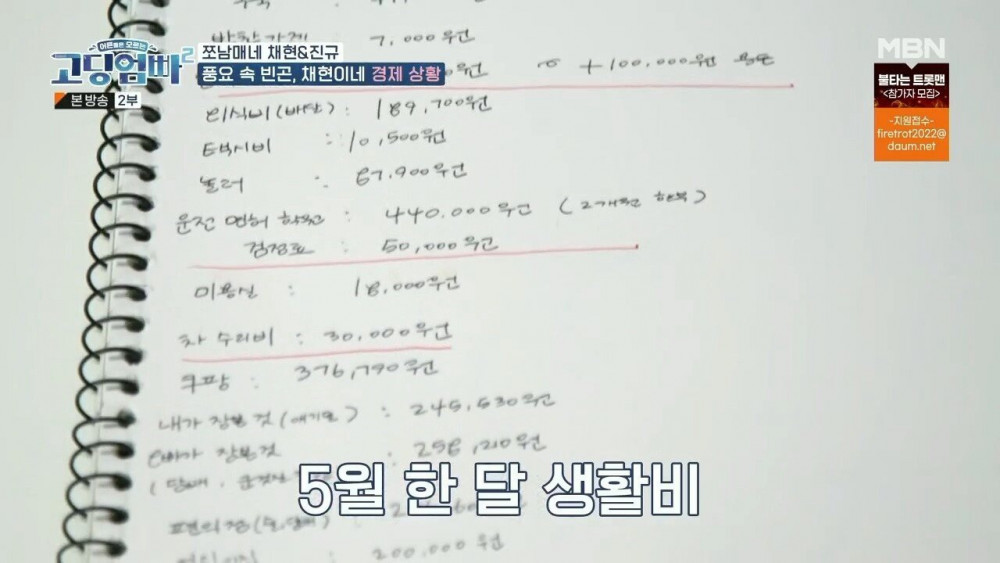 어른들은 모르는
고딩엄빠2
본방송 2부
쪼남매네 채현&진규
풍요 속 빈곤, 채현이네 경제 상황
MBN
불타는 트롯맨
<참가자 모집>
-지원접수-
firetrot2022@
daum.net
7,000원
+100,000원
외식비(배달) : 189,700원
택시비 : 10,500원
놀러 : 87,900원
운전 면허 학원 : 440,000원
검정료 : 50,000원
미용실 : 18,000원
차 수리비 : 30,000원
쿠팡 : 376,790원
내가 장본 것 : 245,530원
오빠가 장본것 : 258,210원
편의점
200,000원
5월 한 달 생활비